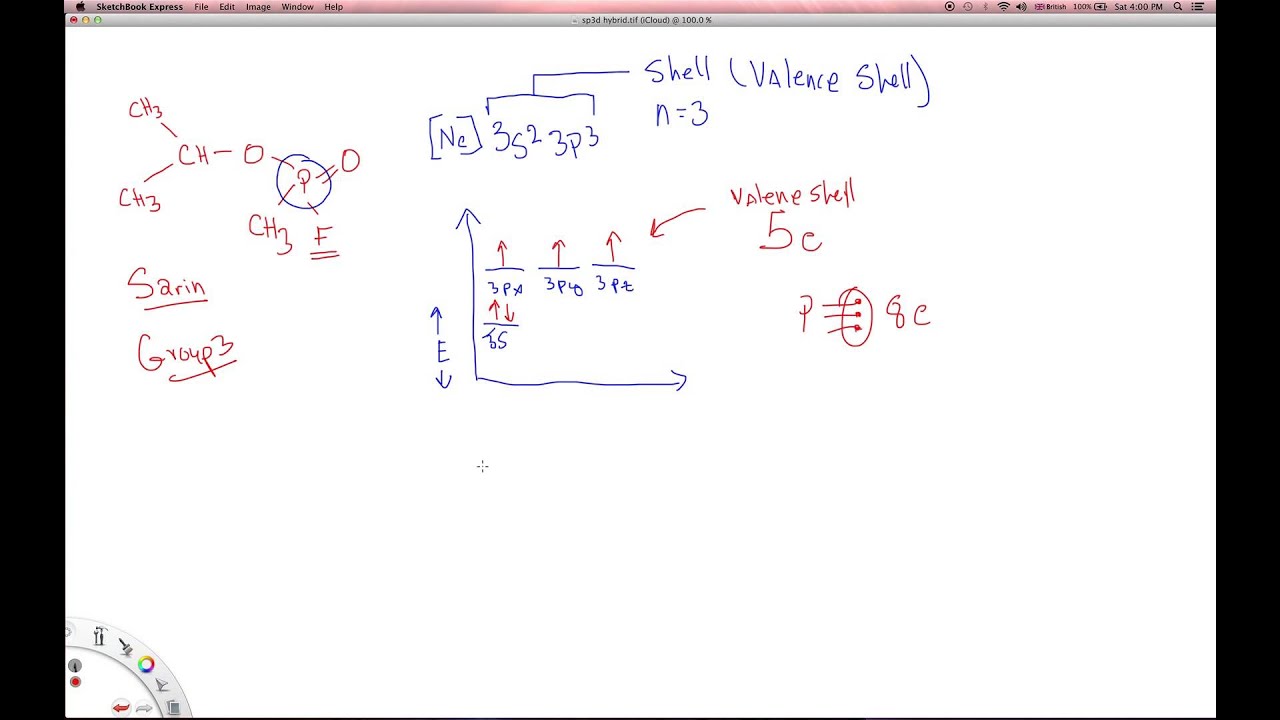 SketchBook Express File Edit Image Window Help
British 100% Sat 4:00 PM
sp3d hybrid.tif (iCloud) @ 100.0 %
Shell (Valence Shell)
n=3
[Ne] 3s² 3p³
CH3
CH - O
P = O
CH3
CH3 F
Sarin
Group3
Valene shell
5e
3px 3py 3pz
3s
E
P 8e